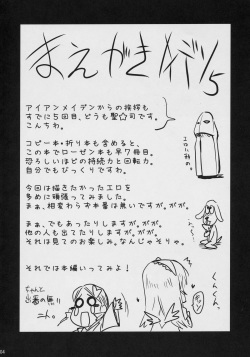 まえがき
アイアンメイデンからの挨拶も
すでに5回目、どうも聖☆司です。
こんちわ。
コピー本・折り本も含めると、
この本でローゼン本も早7冊目。
恐ろしいほどの持続力と回転力。
自分でもびっくりですわ。
今回は描きたかったエロを
多めに頑張ってみました。
まぁ、相変わらず本番は無いですが。がが。
まぁ、でもあったりしますが。がが。
他の人も出てたりしますが。がが。
それは見てのお楽しみ。なんじゃそりゃ。
それでは本編いってみよ!
くんくん
ちゃんと
出番の無い
二人。
04